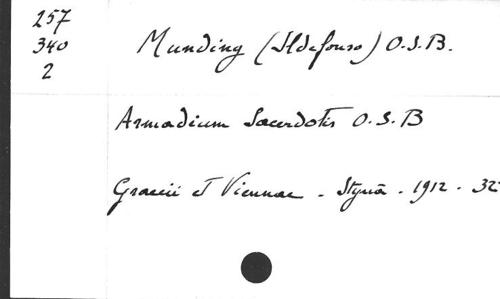 257
340
2
Munding (Ildefonso) O.S.B.
Armadium Sacerdotis O.S.B
Graecii et Viennae - Styria - 1912 - 32